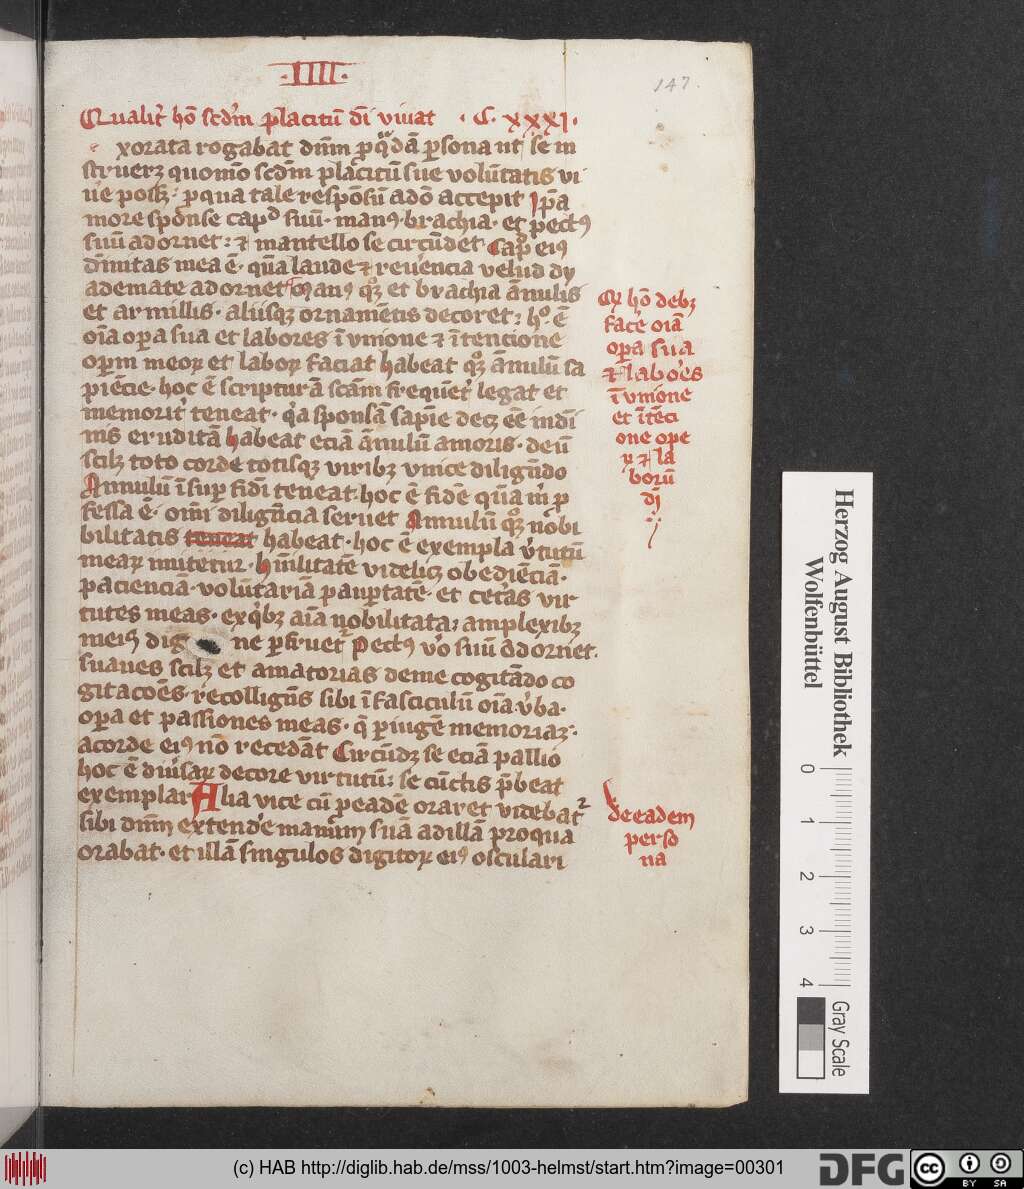 ·IIII·
147.
Qualit᷑ hō scd̄m p̱lacitū dī viuat · C· xxxj·
xorata rogabat dn̄m ꝓ q̄dā ꝑsona ut se in
strueꝫ quom̄o scd̄m placitū sue volūtatis vi
ue possꝫ · ꝓ qua tale respōsū a dn̄o accepit Ip̄a
more spōnse cap̄ᵈ suū · manꝰ brachia · et pectꝰ
suū adornet : ⁊ mantello se circūdet Cap̄ eiꝰ
diuītas mea ē · quā laude ⁊ reuēencia velud dy
ademate adornet Manꝰ qꝫ et brachia ānulis
et armillis · aliisqꝫ ornamētis decoret ; h° ē
oīa oꝑa sua et labores ī vnione ⁊ ītencione
oꝑm meoꝝ et laboꝝ faciat habeat qꝫ ānulū sa
piēcie · hoc ē scripturā scām frequēt᷑ legat et
memorit᷑ teneat · qa sponsā sapiē decꝫ eē in dī
nis eruditā habeat eciā ānulū amoris · deū
scilꝫ toto corde totisqꝫ viribꝫ vnice diligēdo
Annulū īsuꝑ fidī teneat · hoc ē fidē quā m̄ ꝓ
fessa ē · omī diligēcia seruet Annulū qꝫ nobi
bilitatis teneat habeat · hoc ē exempla v̓tutū
meaꝝ imitetur · hūilitatē videlicꝫ obediēciā ·
pacienciā · volūtariā pauꝑtatē · et cet̓as vir
tutes meas · ex qͥbꝫ aīa nobilitata ; amplexibꝫ
meis dig ne ꝑfruet᷑ Pectꝰ vo suū adornet ·
suaues scilꝫ et amatorias de me cogitādo co
gitacoēs · recolligēs sibi ī fasciculū oīa v̓ba ·
oꝑa et passiones meas · q̄ ꝑ iugē memoriaꝫ ·
a corde eiꝰ nō recedāt Circūdꝫ se eciā pallio
hoc ē diūsaꝝ decore virtutū ; se cūctis p̄beat
exemplar Alia vice cū ꝓ eadē oraret videbat᷑
sibi dn̄m extende manum suā ad illā pro qua
orabat · et illā singulos digitoꝝ eiꝰ osculari
Q hō debꝫ
face oīa
oꝑa sua
⁊ labo᷑es
ī vnione
et ītēci
one oꝑe
ꝝ ⁊ la
borū
dī
de eadem
perso
na
Herzog August Bibliothek
Wolfenbüttel
0 1 2 3 4
Gray Scale
(c) HAB http://diglib.hab.de/mss/1003-helmst/start.htm?image=00301
DFG
cc BY SA